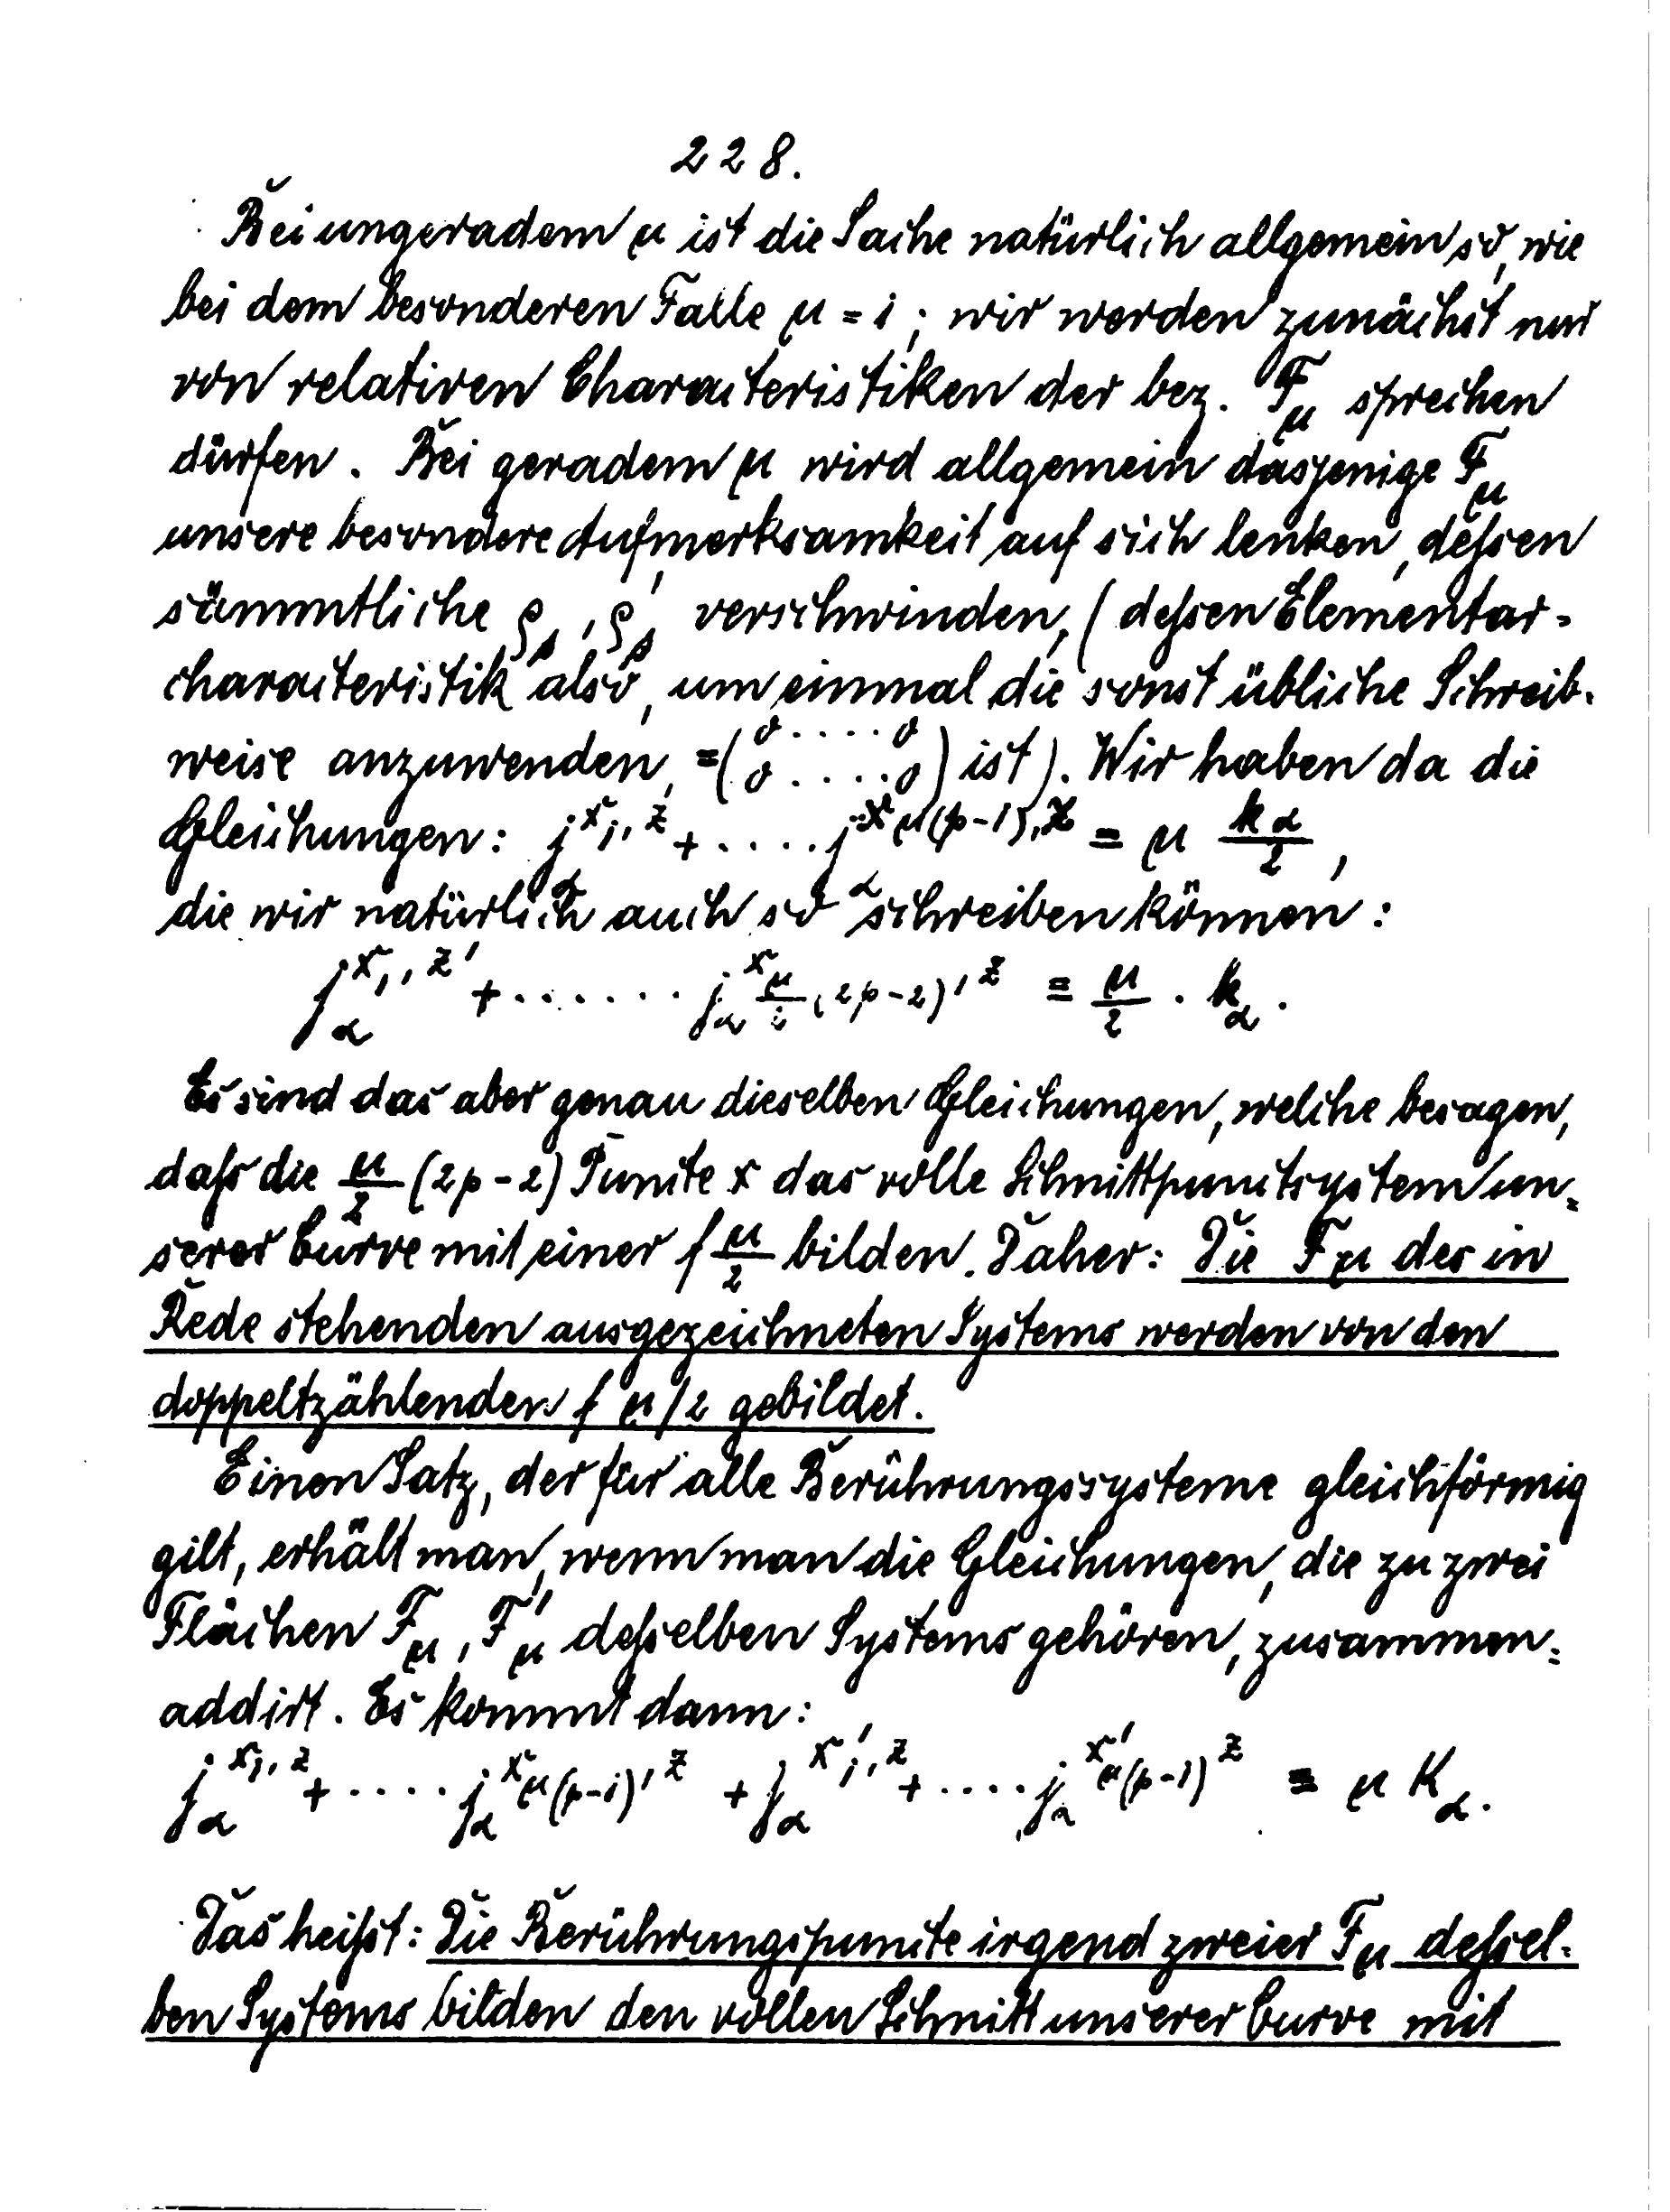 228.
Bei ungeradem μ ist die Sache natürlich allgemein so, wie
bei dem besonderen Falle μ = 1; wir werden zunächst nur
von relativen Characteristiken der bez. F_μ sprechen
dürfen. Bei geradem μ wird allgemein dasjenige F_μ
unsere besondere Aufmerksamkeit auf sich lenken, deſsen
sämmtliche ρ_β, ρ'_β verschwinden, (deſsen Elementar-
characteristik also, um einmal die sonst übliche Schreib-
weise anzuwenden, = (0.....0 / 0.....0) ist). Wir haben da die
Gleichungen: j_α^{x_1, z} + .... j_α^{x_{μ(p-1)}, z} ≡ μ k_α/2,
die wir natürlich auch so schreiben können:
j_α^{x_1, z} + ....... j_α^{x_{μ/2 (2p-2)}, z} ≡ μ/2 . k_α.
Es sind das aber genau dieselben Gleichungen, welche besagen,
daſs die μ/2 (2p-2) Puncte x das volle Schnittpunctsystem un-
serer Curve mit einer f μ/2 bilden. Daher: Die F_μ des in
Rede stehenden ausgezeichneten Systems werden von den
doppeltzählenden f μ/2 gebildet.
Einen Satz, der für alle Berührungssysteme gleichförmig
gilt, erhält man, wenn man die Gleichungen, die zu zwei
Flächen F_μ, F'_μ deſselben Systems gehören, zusammen-
addirt. Es kommt dann:
j_α^{x_1, z} + .... j_α^{x_{μ(p-1)}, z} + j_α^{x'_1, z} + .... j_α^{x'_{μ(p-1)}, z} ≡ μ K_α.
Das heiſst: Die Berührungspuncte irgend zweier F_μ deſsel-
ben Systems bilden den vollen Schnitt unserer Curve mit